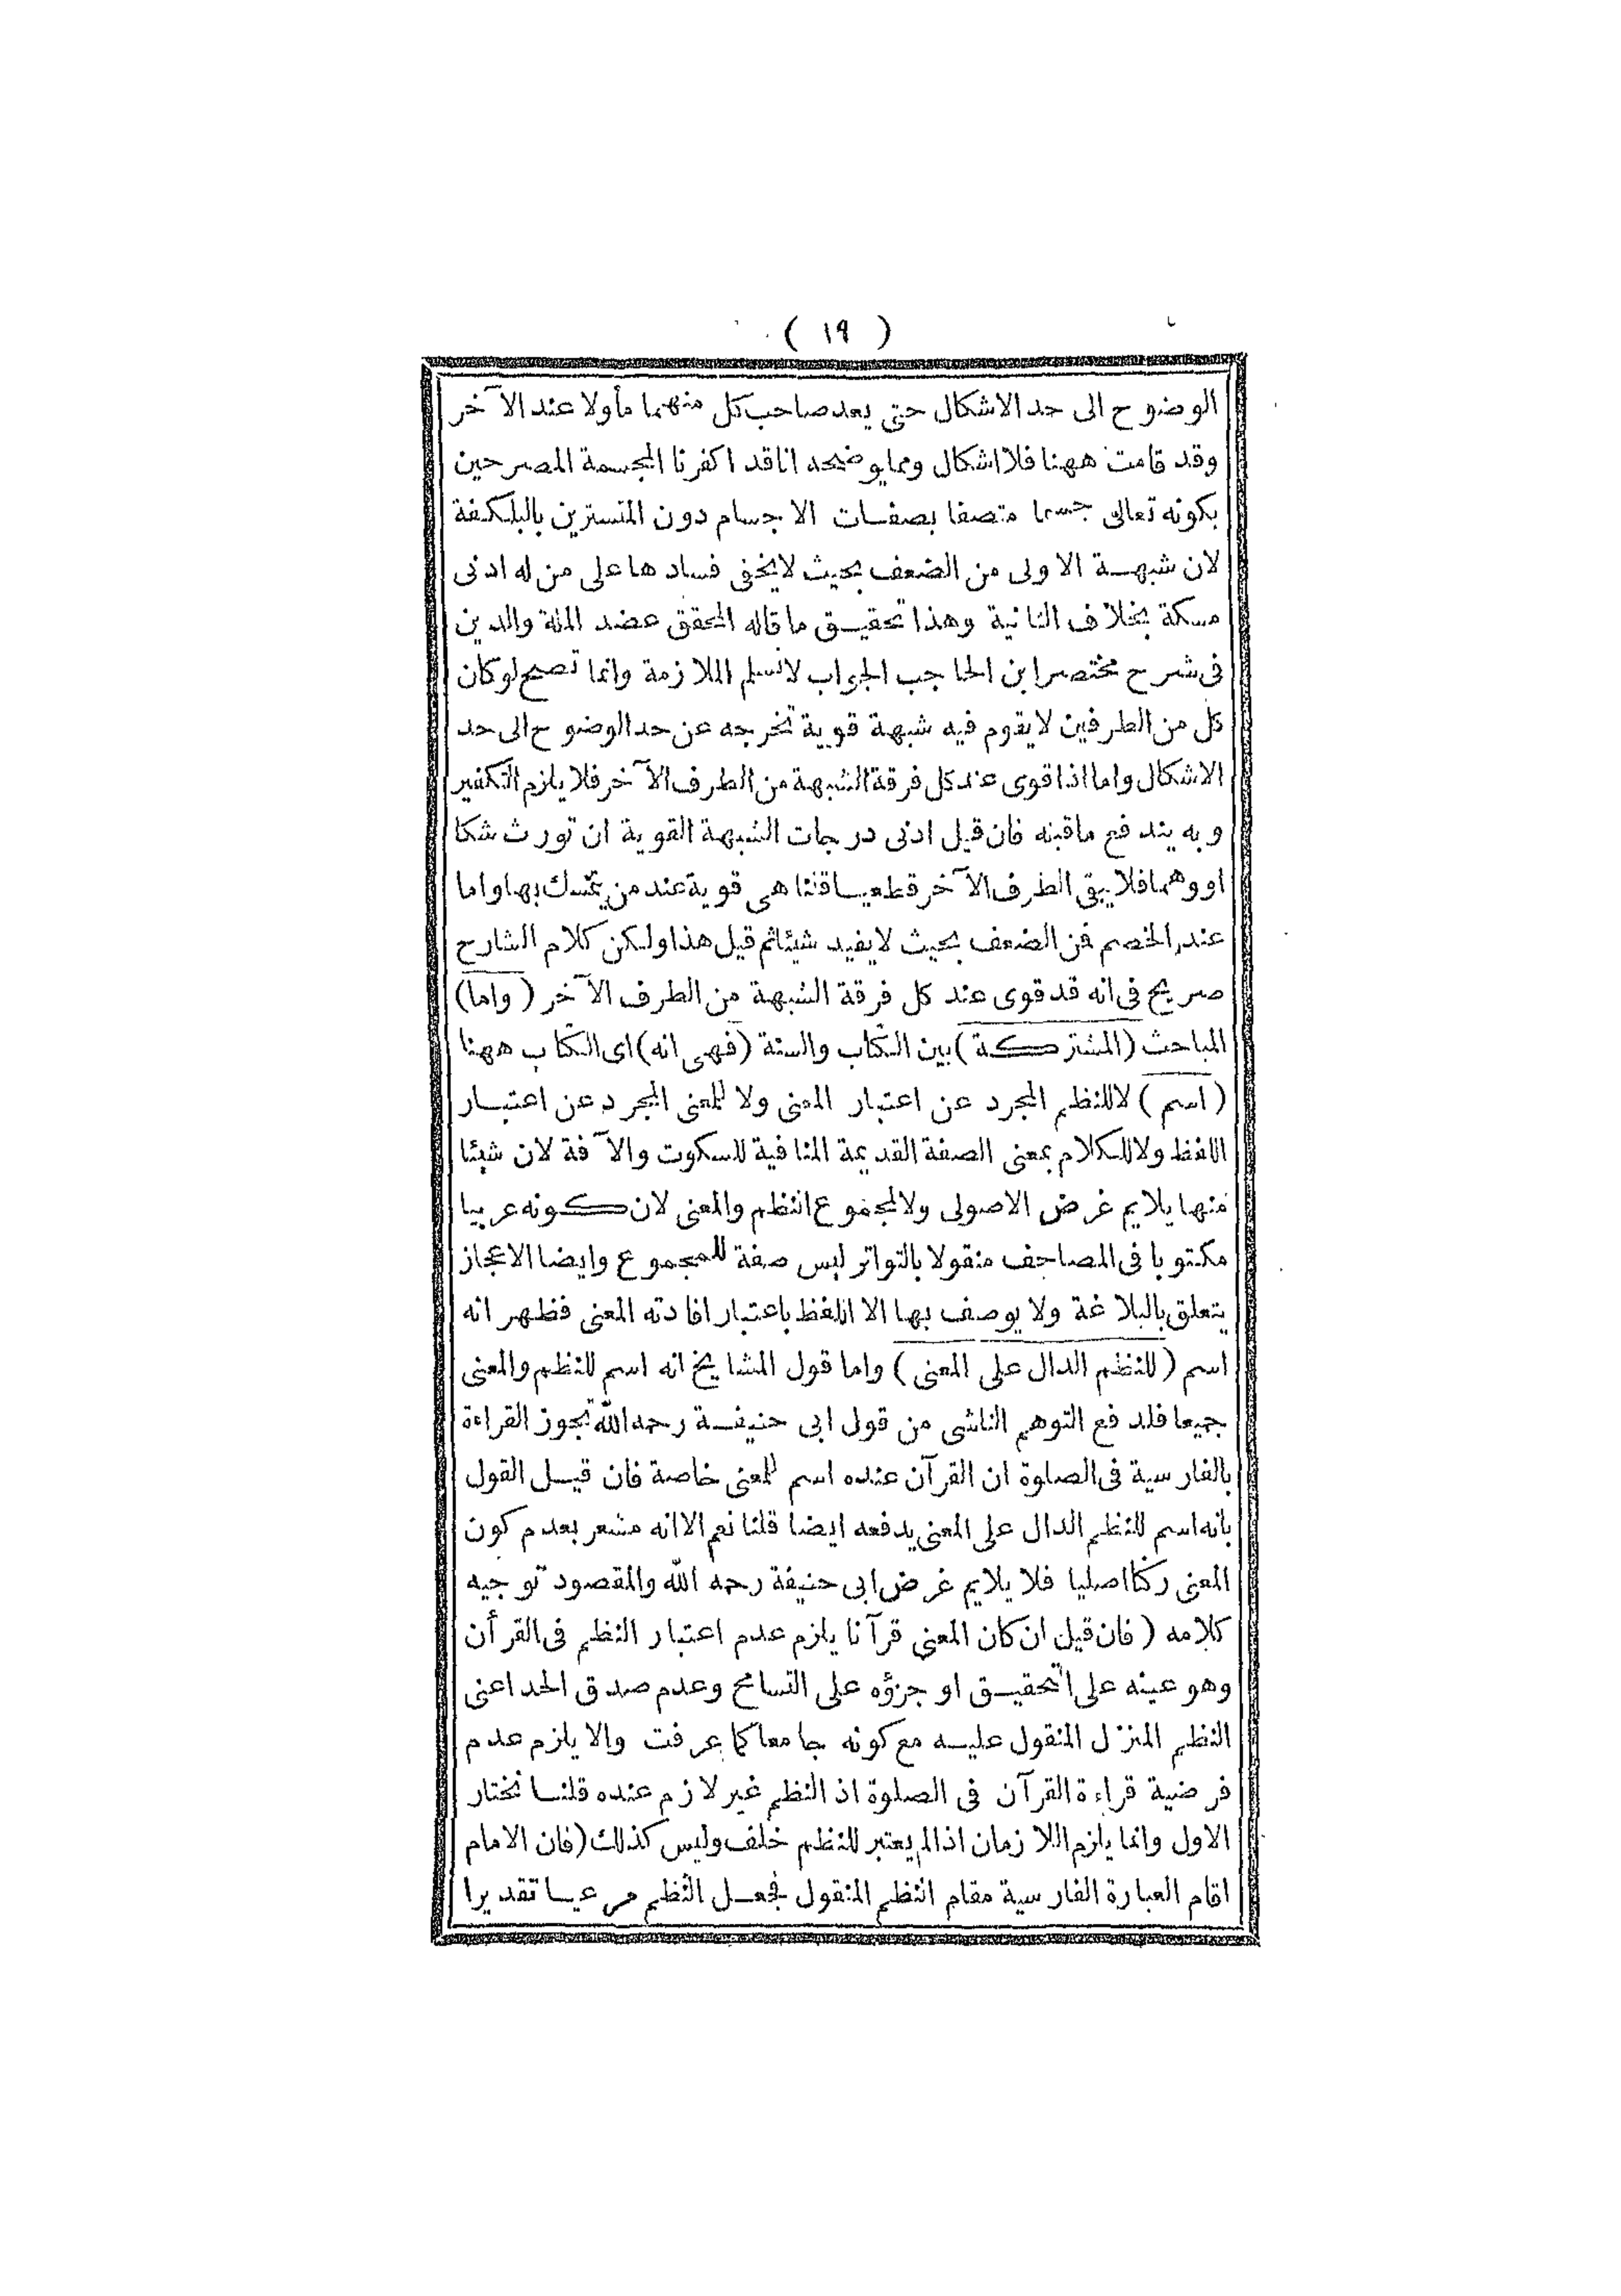 ( ١٩ )
الوضوح الى حد الاشكال حتى يعد صاحب كل منهما مأولا عند الآخر
وقد قامت ههنا فلا اشكال ومما يوضحه انا قد اكفرنا المجسمة المصرحين
بكونه تعالى جسما متصفا بصفات الاجسام دون المتسترين بالبلكفة
لان شبهة الاولى من الضعف بحيث لايخفى فسادها على من له ادنى
مسكة بخلاف الثانية وهذا تحقيق ما قاله المحقق عضد الملة والدين
فى شرح مختصر ابن الحاجب الجواب لانسلم الملازمة وانما تصح لو كان
كل من الطرفين لايقوم فيه شبهة قوية تخرجه عن حد الوضوح الى حد
الاشكال واما اذا قوى عند كل فرقة الشبهة من الطرف الآخر فلا يلزم التكفير
وبه يندفع ما قيل فان قيل ادنى درجات الشبهة القوية ان تورث شكا
او وهما فلا يبقى الطرف الآخر قطعيا قلنا هى قوية عند من يتمسك بها واما
عند الخصم فن الضعف بحيث لايفيد شيئا ثم قيل هذا ولكن كلام الشارح
صريح فى انه قد قوى عند كل فرقة الشبهة من الطرف الآخر ( واما )
المباحث ( المشتركة ) بين الكتاب والسنة ( فهى انه ) اى الكتاب ههنا
( اسم ) لاللنظم المجرد عن اعتبار المعنى ولا للمعنى المجرد عن اعتبار
اللفظ ولا للكلام بمعنى الصفة القديمة المنافية للسكوت والآفة لان شيئا
منها يلايم غرض الاصولى ولا لمجموع النظم والمعنى لان كونه عربيا
مكتوبا فى المصاحف منقولا بالتواتر ليس صفة للمجموع وايضا الاعجاز
يتعلق بالبلاغة ولا يوصف بها الا اللفظ باعتبار افادته المعنى فظهر انه
اسم ( للنظم الدال على المعنى ) واما قول المشايخ انه اسم للنظم والمعنى
جميعا فلدفع التوهم الناشى من قول ابى حنيفة رحمه الله تجوز القراءة
بالفارسية فى الصلوة ان القرآن عنده اسم للمعنى خاصة فان قيل القول
بانه اسم للنظم الدال على المعنى يدفعه ايضا قلنا نعم الا انه مشعر بعدم كون
المعنى ركنا اصليا فلا يلايم غرض ابى حنيفة رحمه الله والمقصود توجيه
كلامه ( فان قيل ان كان المعنى قرآنا يلزم عدم اعتبار النظم فى القرأن
وهو عينه على التحقيق او جزؤه على التسامح وعدم صدق الحد اعنى
النظم المنزل المنقول عليه مع كونه جامعا كما عرفت والا يلزم عدم
فرضية قراءة القرآن فى الصلوة اذ النظم غير لازم عنده قلنا نختار
الاول وانما يلزم اللازمان اذا لم يعتبر للنظم خلف وليس كذلك ( فان الامام
اقام العبارة الفارسية مقام النظم المنقول فجعل النظم مرعيا تقديرا